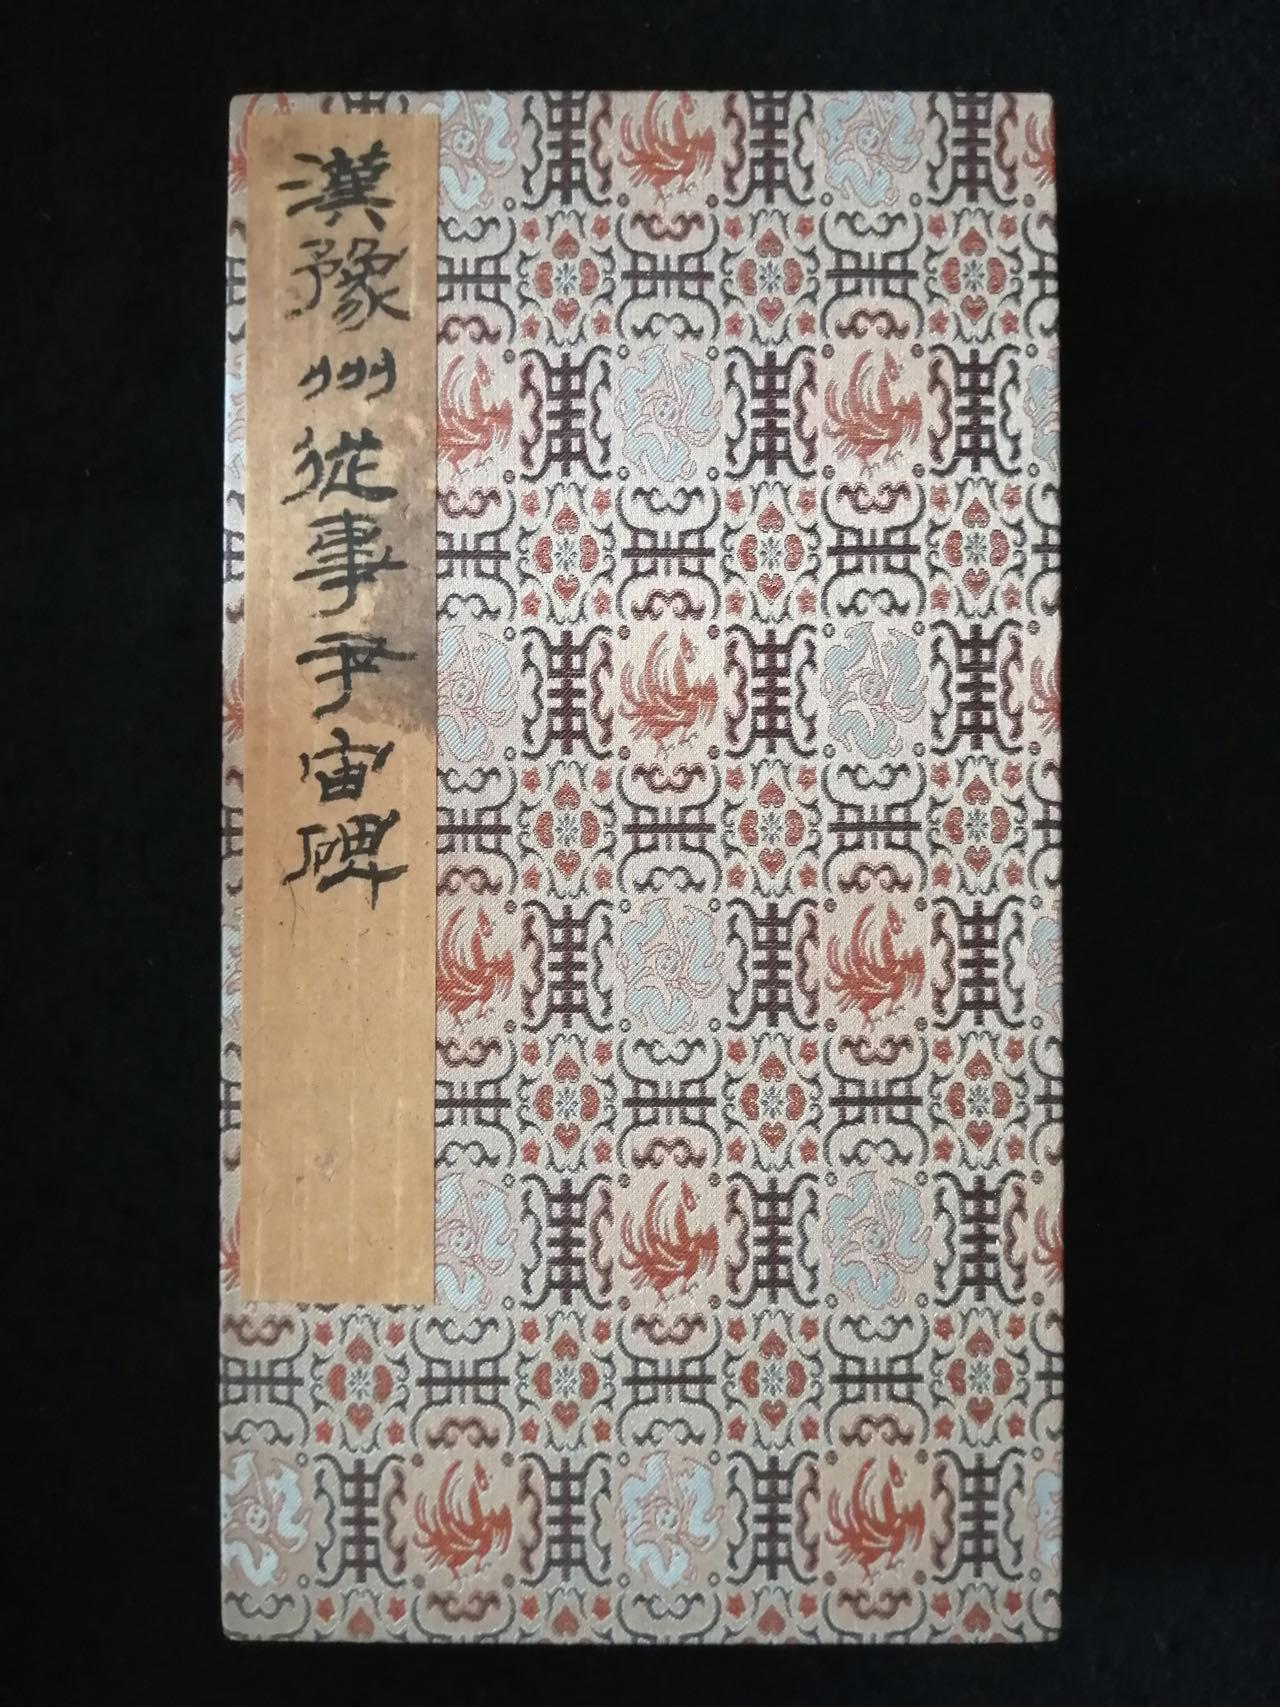 漢豫州從事尹宙碑